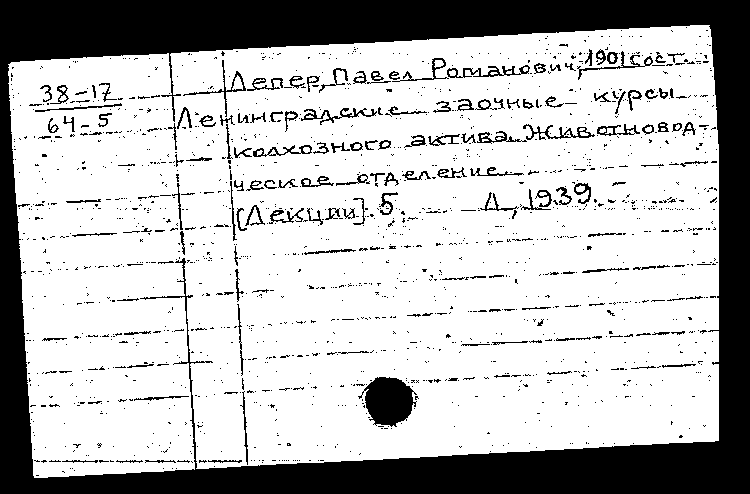 38-17
64-5
Лепер, Павел Романович, 1901 сост.
Ленинградские заочные курсы
колхозного актива. Животновод-
ческое отделение
[Лекции]. 5. Л., 1939.